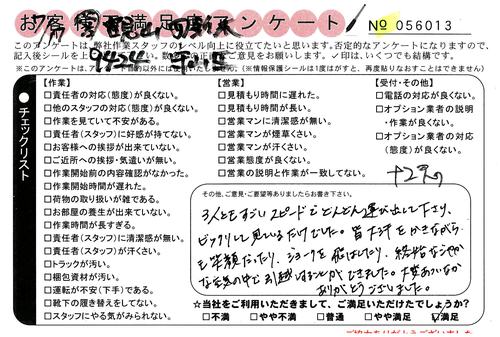 お客様満足度アンケート
No 056013
このアンケートは、弊社作業スタッフのレベル向上に役立てたいと思います。否定的なアンケートになりますので、
記入後シールを上
ご意見をお願いします。✓印は、いくつでも結構です。
(※情報保護シールは1度はがすと、再度貼りなおすことはできません)
チェックリスト
【作業】
□責任者の対応(態度)が良くない。
□他のスタッフの対応(態度)が良くない。
□作業を見ていて不安がある。
□責任者(スタッフ)に好感が持てない。
□お客様への挨拶が出来ていない。
□ご近所への挨拶・気遣いが無い。
□作業開始前の内容確認がなかった。
□作業開始時間が遅れた。
□荷物の取り扱いが雑である。
□お部屋の養生が出来ていない。
□作業時間が長すぎる。
□責任者(スタッフ)に清潔感が無い。
□責任者(スタッフ)が汗くさい。
□トラックが汚い。
□梱包資材が汚い。
□運転が不安(下手)である。
□靴下の履き替えをしてない。
□スタッフにやる気がみられない。
【営業】
□見積もり時間に遅れた。
□見積もり時間が長い。
□営業マンに清潔感が無い。
□営業マンが煙草くさい。
□営業マンが汗くさい。
□営業態度が良くない。
□営業の説明と作業が一致してない。
【受付・その他】
□電話の対応が良くない。
□オプション業者の説明
・作業が良くない。
□オプション業者の対応
(態度)が良くない。
その他、ご意見・ご要望等ありましたらお書き下さい。
3人ともすごいスピードでどんどん運び出して下さり、
ビックリして見ているだけでした。皆大汗をかきながら
も笑顔だったり、ジョークを飛ばしたり、終始なごやか
な空気の中で引越しすることができました。大変あついなか
ありがとうございました。
☆当社をご利用いただきまして、ご満足いただけたでしょうか?
□不満 □やや不満 □普通 □やや満足 ☑満足
ご協力ありがとうございました